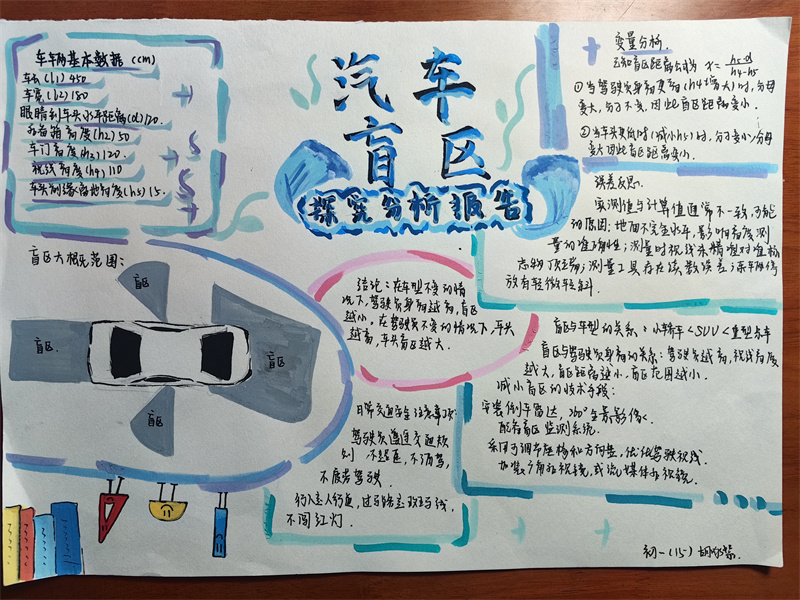 汽车
盲区
探究分析报告
车辆基本数据 (cm)
车长(l1) 450
车宽(l2) 180
眼睛到车头水平距离(d) 120.
后备箱高度(h2) 50
车门高度(h3) 120.
视线高度(h4) 110
车头前缘离地高度(h5) 15.
盲区大概范围:
盲区
盲区.
盲区
盲区
结论:在车型不变的情
况下,驾驶员身高越高,盲区
越小。在驾驶员不变的情况下,车头
越高,车头盲区越大.
日常交通安全注意事项:
驾驶员遵守交通规
则 不超速,不酒驾,
不疲劳驾驶.
行人走人行道,过马路走斑马线,
不闯红灯.
变量分析.
已知盲区距离公式为 x= h5·d / h4-h5
①当驾驶员身高变高(h4增大)时,分母
变大,分子不变,因此盲区距离变小.
②当车头更低时(减小h5)时,分子变小,分母
变大因此盲区距离变小.
误差反思.
实测值与计算值通常不一致,可能
的原因:地面不完全水平,影响高度测
量的准确性;测量时视线未精准对准标
志物顶端;测量工具存在读数误差;
放有轻微倾斜.
盲区与车型的关系:小轿车<SUV<重型卡车
盲区与驾驶员身高的关系:驾驶员越高,视线高度
越大,盲区距离越小,盲区范围越小.
减小盲区的技术手段:
安装倒车雷达,360°全景影像
配备盲区监测系统.
采用可调节座椅和方向盘,优化驾驶视线.
加装广角后视镜,或流媒体后视镜.
初一(15)